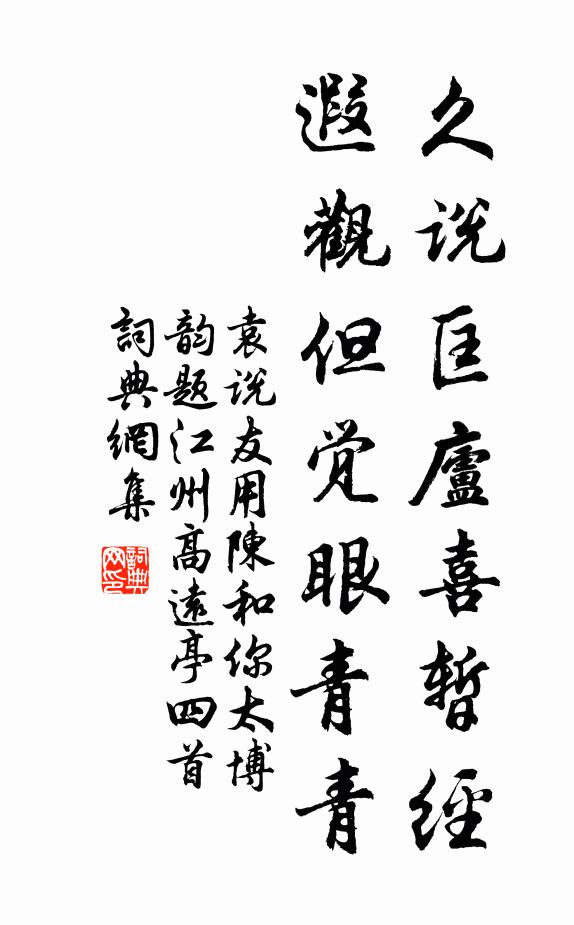 久说匡廬喜暫經
遐觀但觉眼青青
袁说友用陳和你太博
韵题江州高遠亭四首
詞典網集
詞典网印